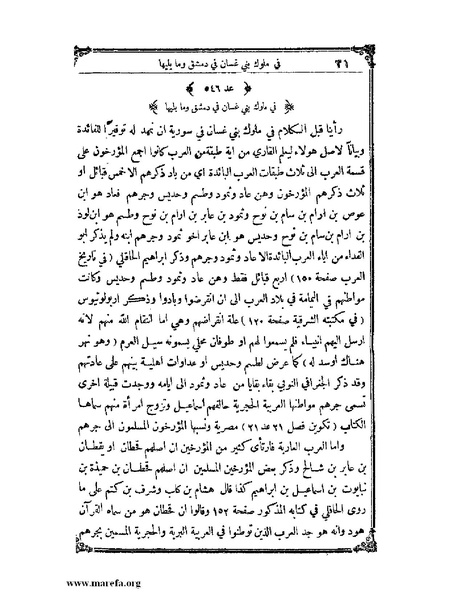 ٢١ في ملوك بني غسان في دمشق وما يليها
﴿ عد ٥٤٦ ﴾
﴿ في ملوك بني غسان في دمشق وما يليها ﴾
رأينا قبل الكلام في ملوك بني غسان في سورية ان نمهد له توفيرًا للفائدة
وبيانًا لاصل هولاء ليعلم القاري من اية طبقة من العرب كانوا اجمع المؤرخون على
قسمة العرب الى ثلاث طبقات العرب البائدة اي من باد ذكرهم الا خمس قبائل او
ثلاث ذكرهم المؤرخون وهن عاد وثمود وطسم وجديس وجرهم فعاد هو ابن
عوص بن ارام بن سام بن نوح وثمود بن عابر بن ارام بن نوح وطسم هو ابن لوذ
بن ارام بن سام بن نوح وجديس هو ابن عابر اخو ثمود وجرهم ابنه ولم يذكر ابو
الفداء من اباء العرب البائدة الا عاد وثمود وجرهم وذكر ابراهيم الحاقلي ( في تاريخ
العرب صفحة ١٥٠ ) اربع قبائل فقط وهن عاد وثمود وطسم وجديس وكانت
مواطنهم في اليمامة في بلاد العرب الى ان انقرضوا وبادوا وذكر اربولوتيوس
( في مكتبته الشرقية صفحة ١٢٠ ) علة انقراضهم وهي اما انتقام الله منهم لانه
ارسل اليهم انبياء فلم يسمعوا لهم او طوفان محلي يسمونه سيل العرم ( وهو نهر
هناك اوسد له ) كما عرض لطسم وجديس او عداوات اهلية بينهم على عادتهم
وقد ذكر الجغرافي النوبي بقاء بقايا من عاد وثمود الى ايامه ووجدت قبيلة اخرى
تسمى جرهم مواطنها العربية الحجرية حالفهم اسماعيل وتزوج امرأة منهم سماها
الكتاب ( تكوين فصل ٢١ عد ٢١ ) مصرية ونسبها المؤرخون المسلمون الى جرهم
واما العرب العاربة فارتأى كثير من المؤرخين ان اصلهم قحطان او يقطان
بن عابر بن شالخ وذكر بعض المؤرخين المسلمين ان اصلهم قحطان بن حميذة بن
نبايوت بن اسماعيل بن ابراهيم كذا قال هشام بن كاب وشرف بن كتم على ما
روى الحاقلي في كتابه المذكور صفحة ١٥٢ وقالوا ان قحطان هو من سماه القرآن
هود وانه هو جد العرب الذين توطنوا في العربية البرية والحجرية المسمين بجرهم
www.marefa.org